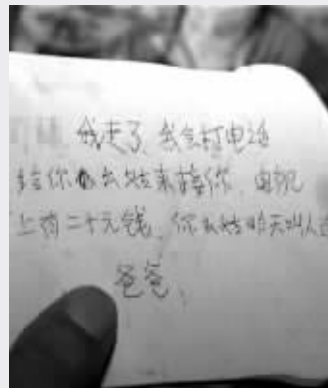 我走了,我会打电话
给你么姑来接你,电视
上有二十元钱,你么姑昨天叫人
爸爸、